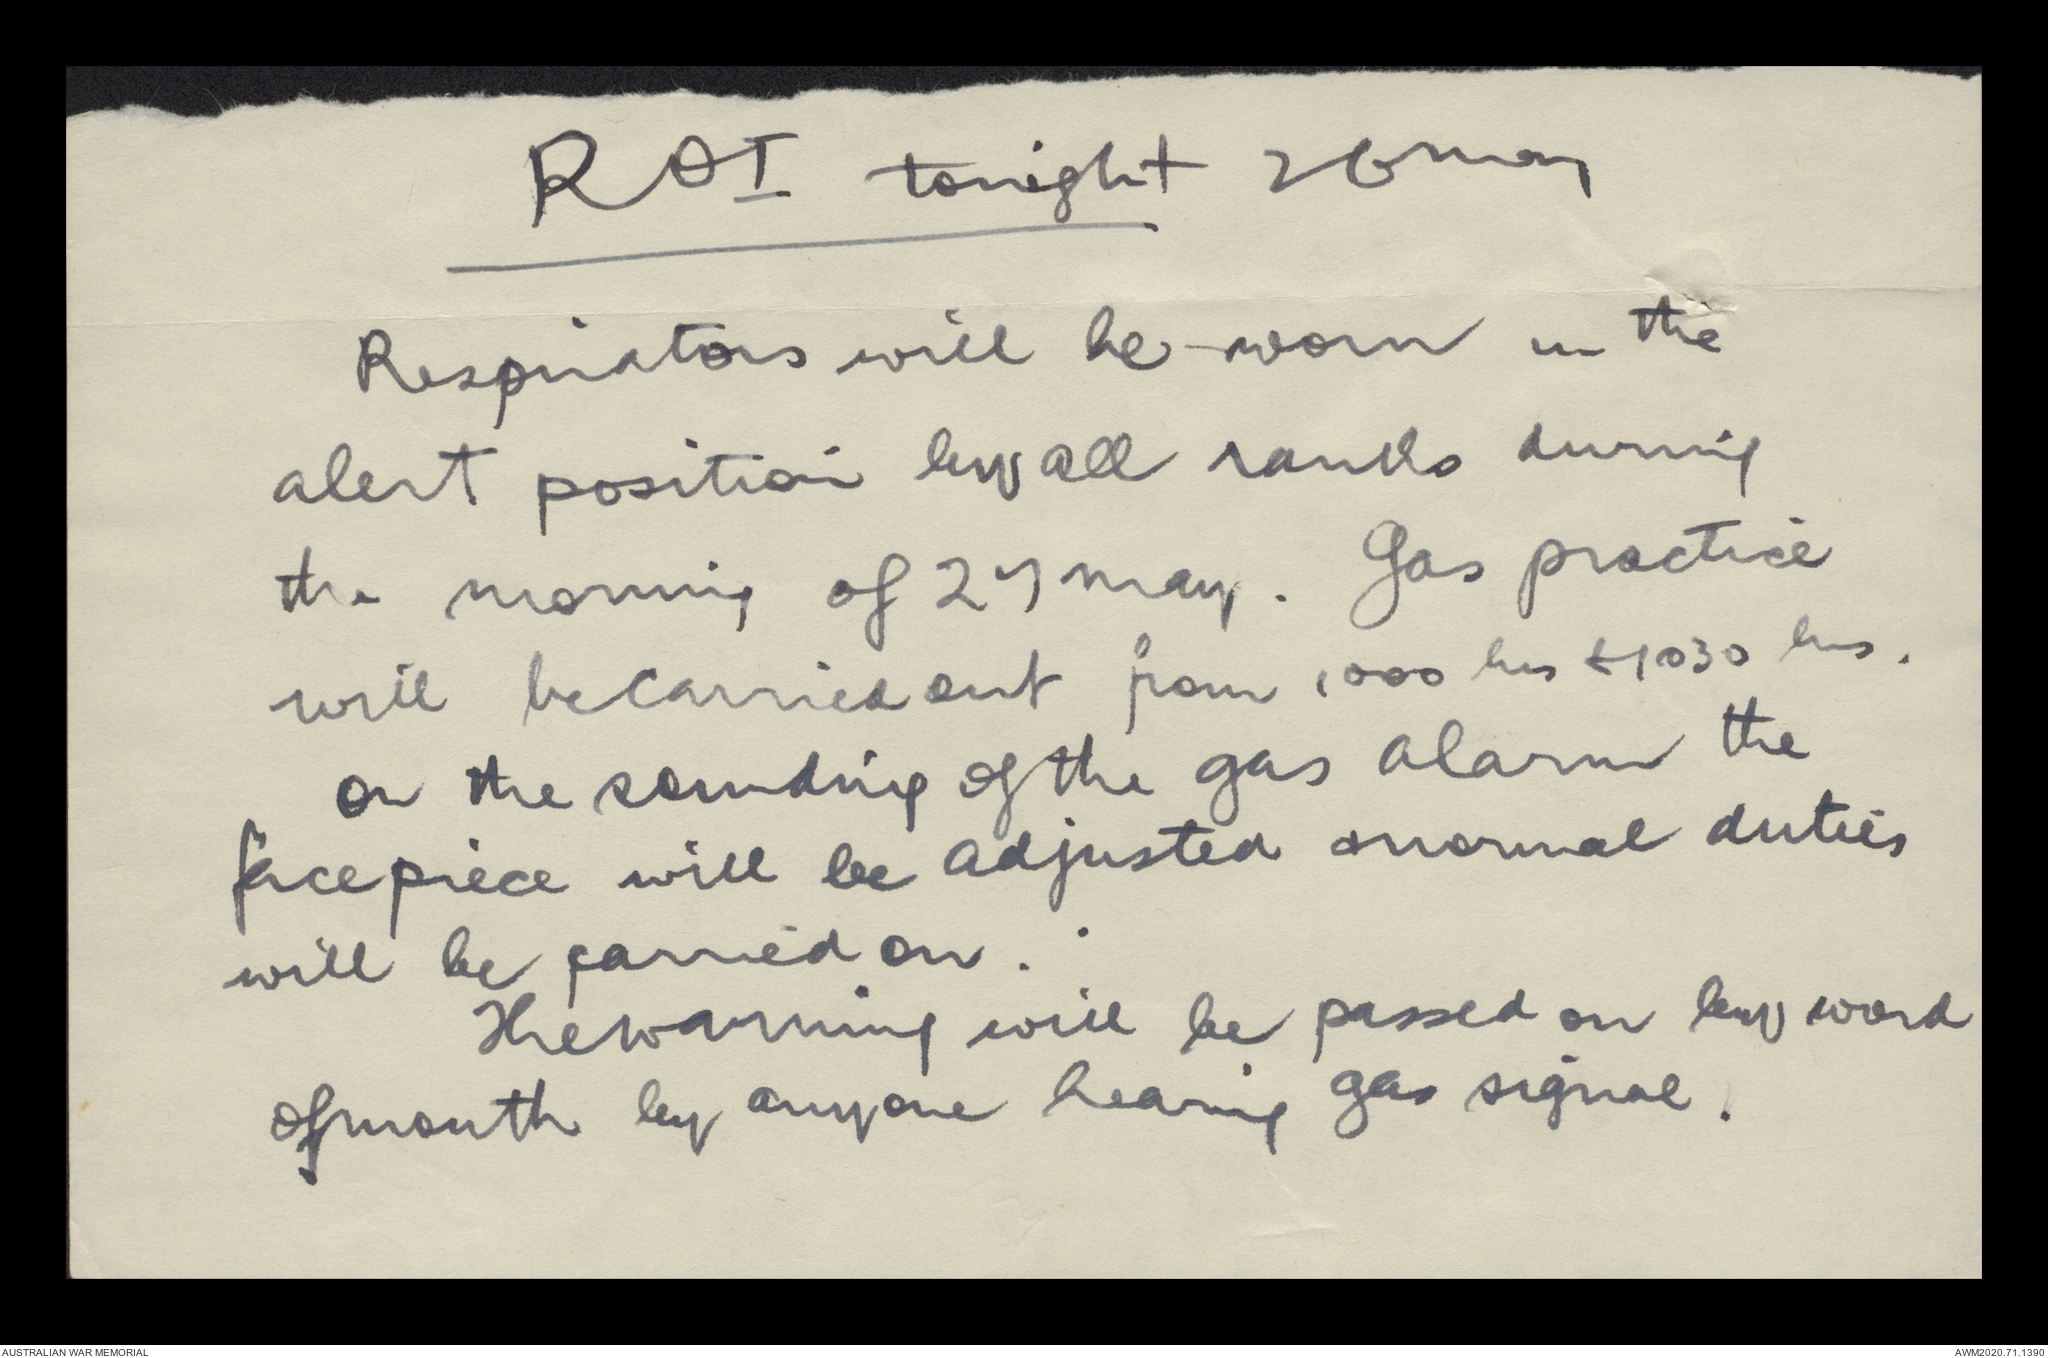 ROI tonight 26 May
Respirators will be worn in the
alert position by all ranks during
the morning of 27 May. Gas practice
will be carried out from 1000 hrs to 1030 hrs.
On the sounding of the gas alarm the
face piece will be adjusted & normal duties
will be carried on.
The warning will be passed on by word
of mouth by anyone hearing gas signal.
AUSTRALIAN WAR MEMORIAL
AWM2020.71.1390